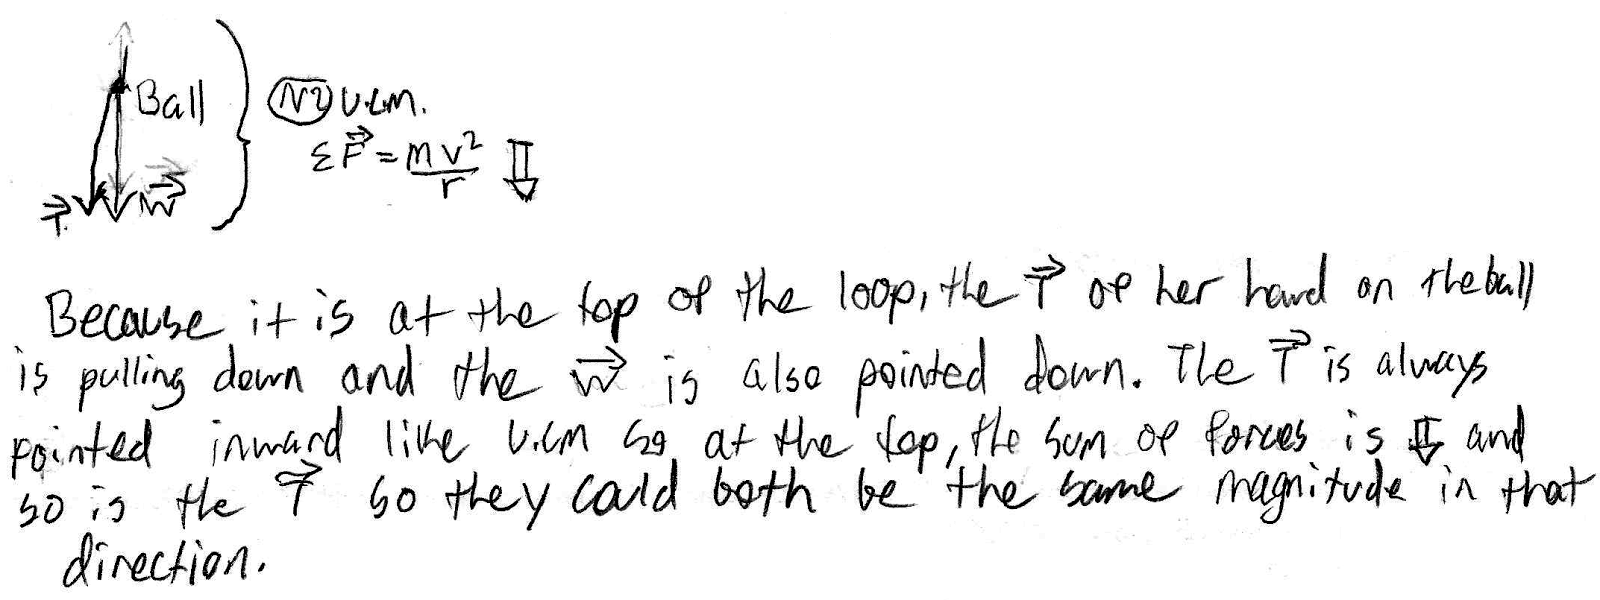 Ball
N2 U.C.M.
ΣF⃗ = mv²/r ⇓
T⃗ W⃗
Because it is at the top of the loop, the T⃗ of her hand on the ball
is pulling down and the w⃗ is also pointed down. The T⃗ is always
pointed inward like U.C.M so at the top, the sum of forces is ⇓ and
so is the T⃗ so they could both be the same magnitude in that
direction.